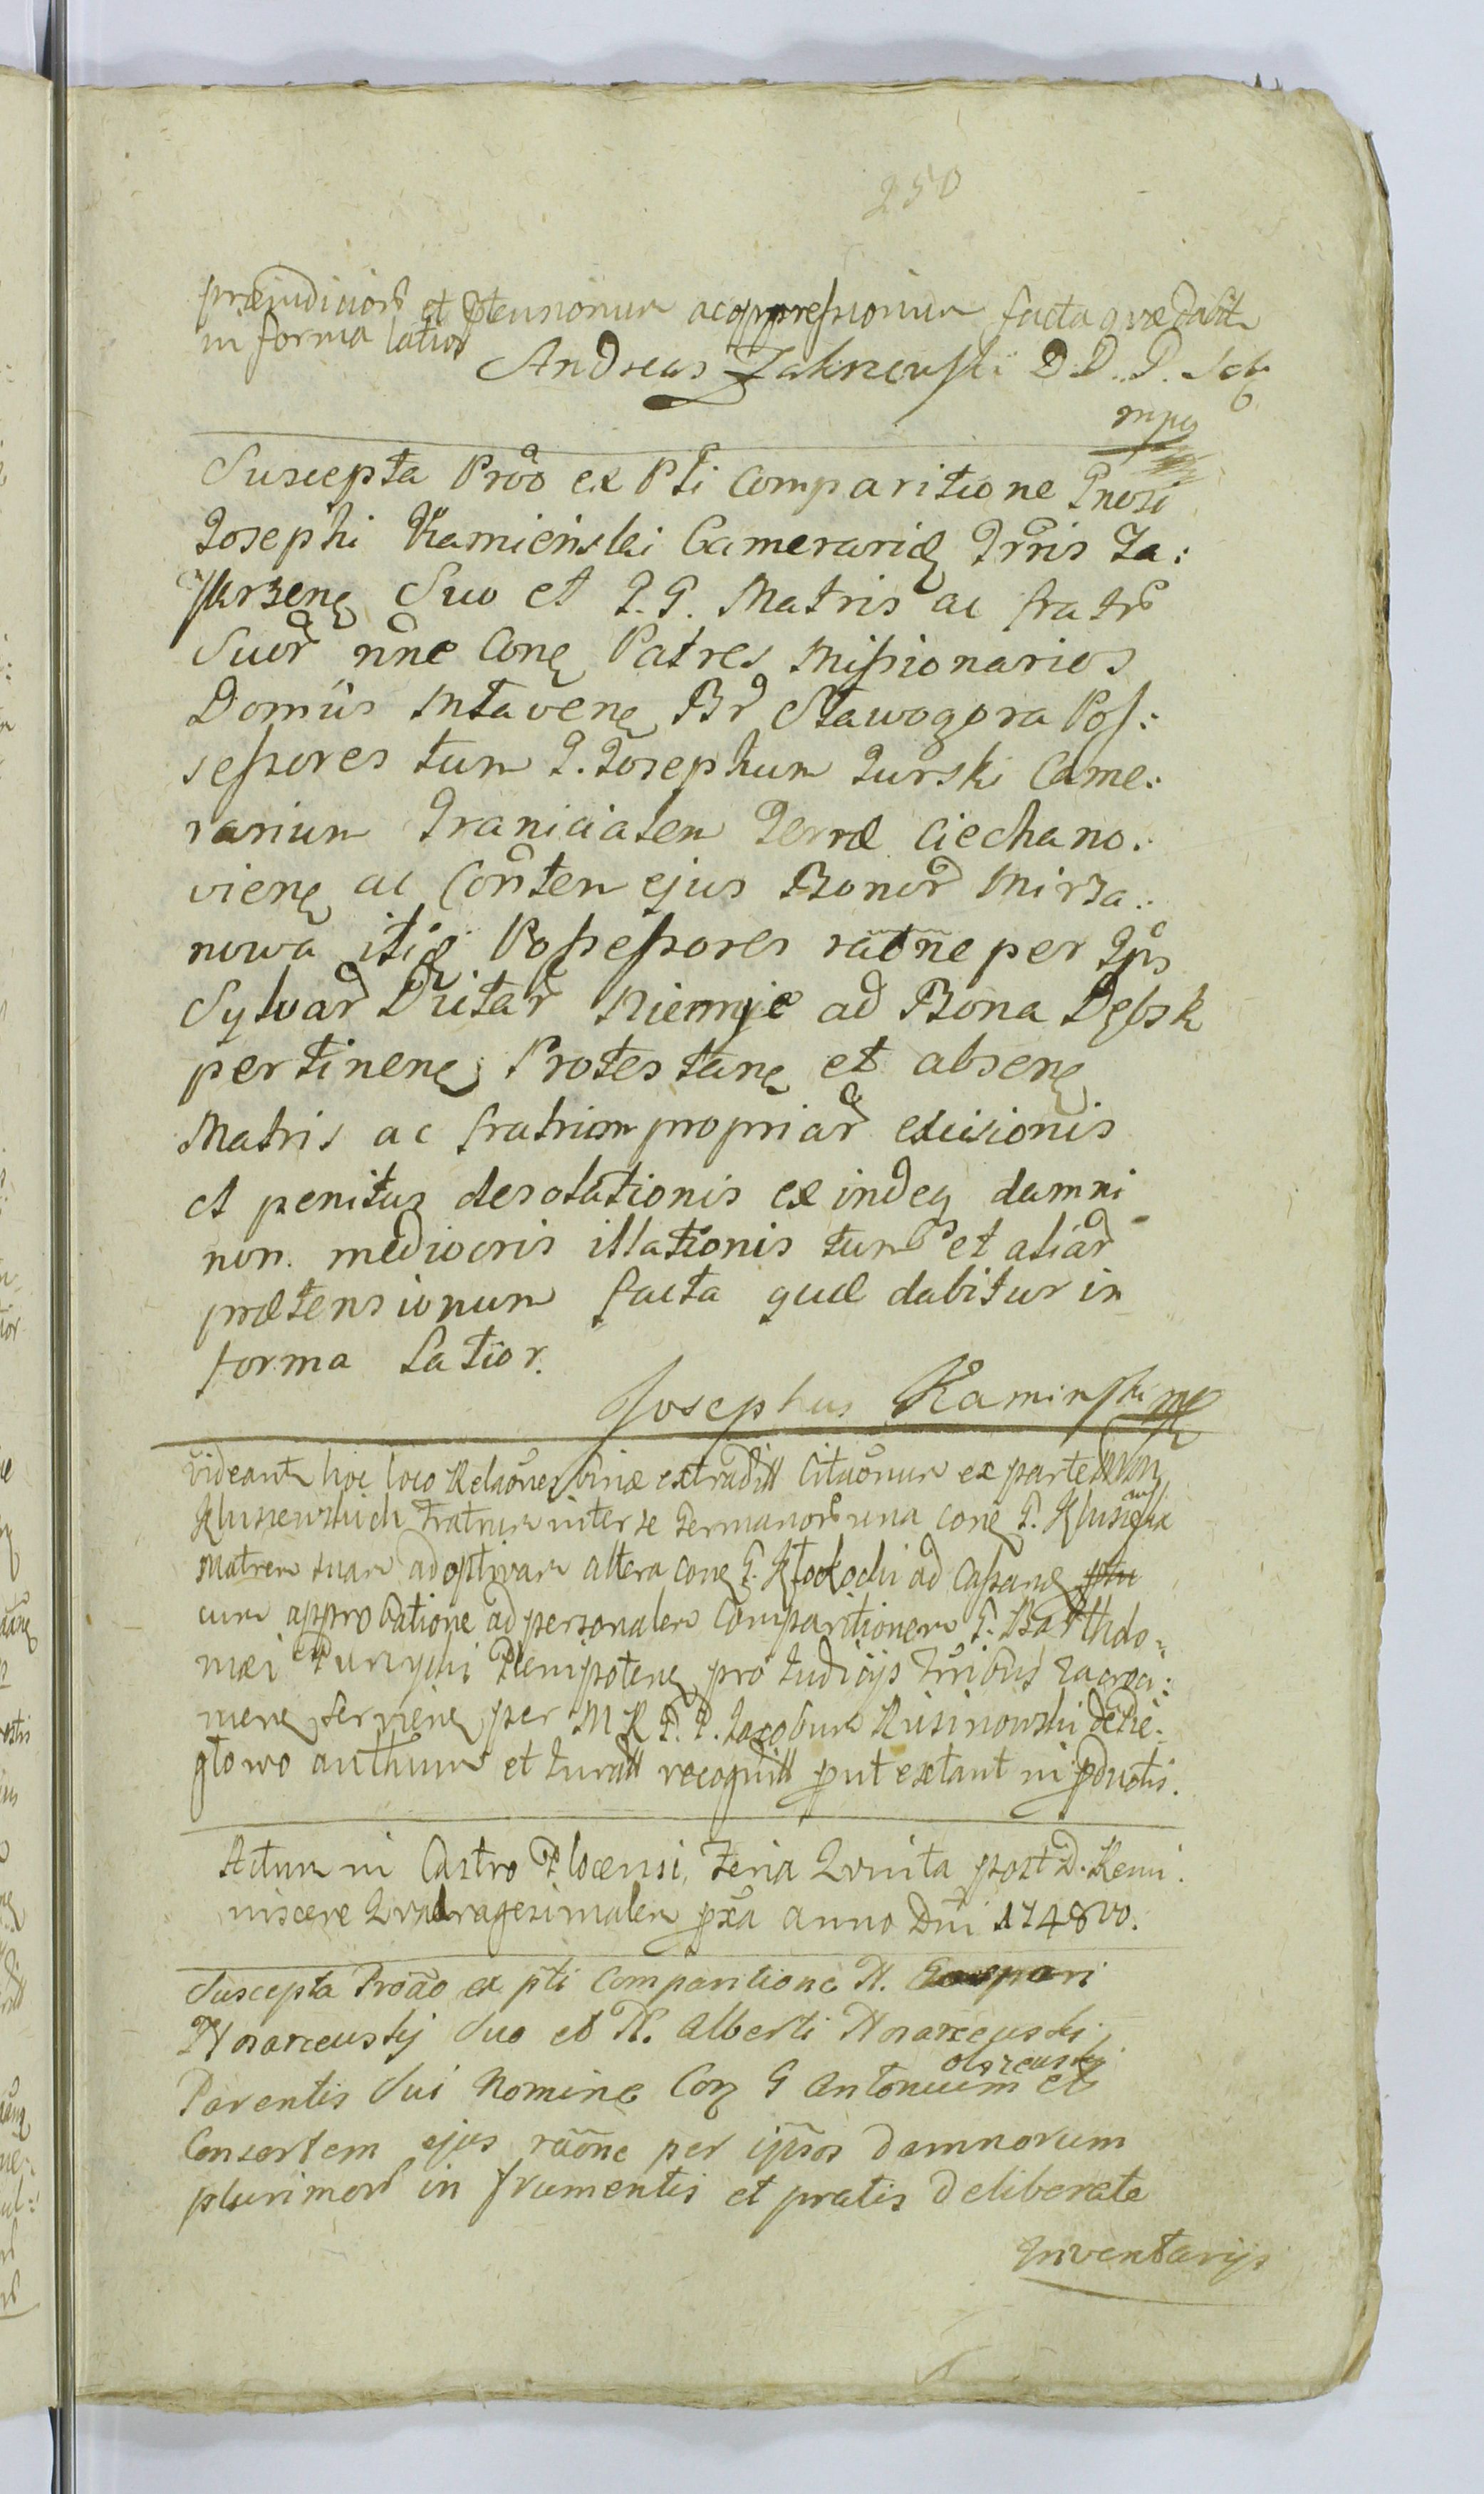 250
præjudiciorũ et ptensionum ac oppressionum facta quæ dabitr
in forma latiori
Andreas Zakrzewski D. D. P. Sch
mpp
Suscepta Prõo ex Pti Comparitione Gnosi
Josephi Kamieński Camerarij Trris Za:
Skrzenę Suo et G. G. Matris ac fratrũ
Suor̃ nñe Conę Patres Missionarios
Domûs Mlavenę Br̃ Stawogora Pos:
sessores tum G. Josephum Jurski Came:
rarium Graniciatem Terræ Ciechano:
vienę ac Coñtem ejus Bonor̃ Mirza:
nowa itię Possessores raõne per Ips
Sylvar̃ Duitar̃ Niemyje ad Bona Dębsk
pertinenę Protestanę et absenę
Matris ac fratrum propriar̃ excisionis
et penitus desolationis exindeq damni
non mediocris illationis tum et aliar̃
prætensionum facta quæ dabitur in
forma Latior.
Josephus Kaminski mp
videantr hoc loco Relaõnes binæ extradill Citaõnum ex parte
fratrum inter se Germanorũ una conę G.
Matrem suam adoptivam altera conę G. Kłockochi ad Cassanę
cum approbatione ad personalem Comparitionem G. Bartholo:
mæi Plenipotenę pro Judicijs Trribus Zacroci:
menę Servienę per M R G. P. Jacobum Rusinowski de Rie:
głowo authum et Juratt recognitt put extant in pductis.
Actum in Castro Plocensi, Feria Quinta post D. Remi:
niscere Quadragesimalem pxã anno Dni 1748vo.
Suscepta Proão ex pti Comparitione N. Caspari
Nosarzewskij Suo et N. Alberti Nosarzewski
Parentis Sui Nomine Con G Antonium olszewski et
Consortem ejus raõne per ipsos Damnorum
plurimorũ in frumentis et pratis Deliberate
Inventarijs